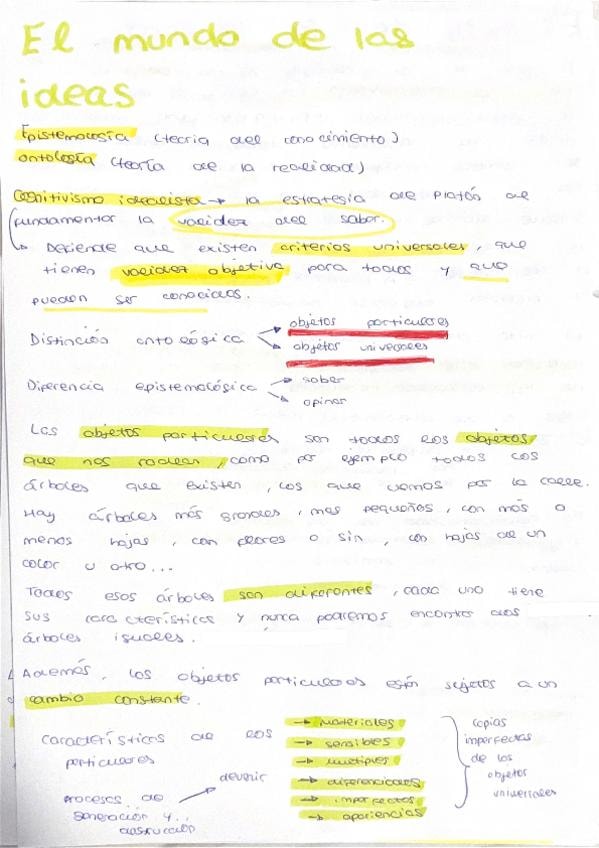 El mundo de las
ideas
Epistemología (teoría del conocimiento)
ontología (teoría de la realidad)
Cognitivismo idealista → la estrategia de Platón de
fundamentar la validez del saber.
↳ Defiende que existen criterios universales, que
tienen validez objetiva para todos y que
pueden ser conocidos.
Distinción ontológica → objetos particulares
→ objetos universales
Diferencia epistemológica → saber
→ opinar
Los objetos particulares son todos los objetos
que nos rodean, como por ejemplo todos los
árboles que existen, los que vemos por la calle.
Hay árboles más grandes, mas pequeños, con más o
menos hojas, con flores o sin, con hojas de un
color u otro...
Todos esos árboles son diferentes, cada uno tiene
sus características y nunca podremos encontrar dos
árboles iguales.
Además, los objetos particulares están sujetos a un
cambio constante.
características de los
particulares
→ materiales
→ sensibles
→ múltiples
→ diferenciados
→ imperfectos
→ apariencias
copias
imperfectas
de los
objetos
universales
procesos de
generación y..
destrucción
→ devenir